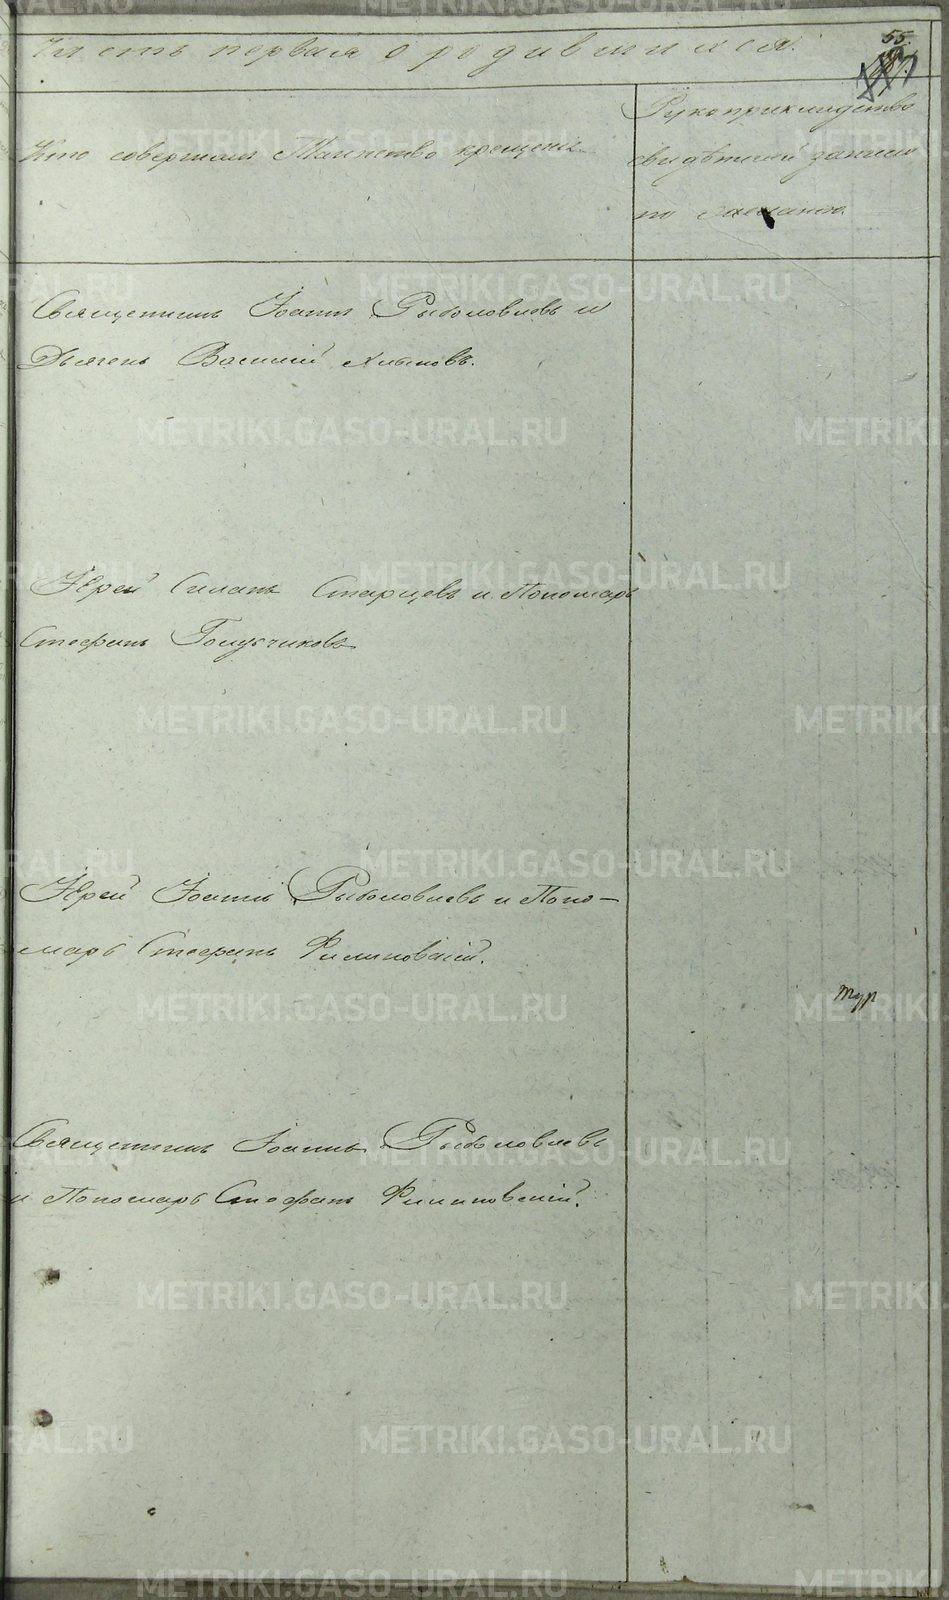 Часть первая о родившихся.
55
Кто совершалъ Таинство крещенiя
Рукоприкладство
свидѣтелей записи
по желанiю.
Священникъ Iоаннъ Рыболовлевъ и
Дьячекъ Василiй Хлыновъ.
Iерей Симеонъ Старцевъ и Пономарь
Стефанъ Голубчиковъ
Iерей Iоаннъ Рыболовлевъ и Поно-
марь Стефанъ Филиповскiй.
тур
Священникъ Iоаннъ Рыболовлевъ
и Пономарь Стефанъ Филиповскiй.
METRIKI.GASO-URAL.RU